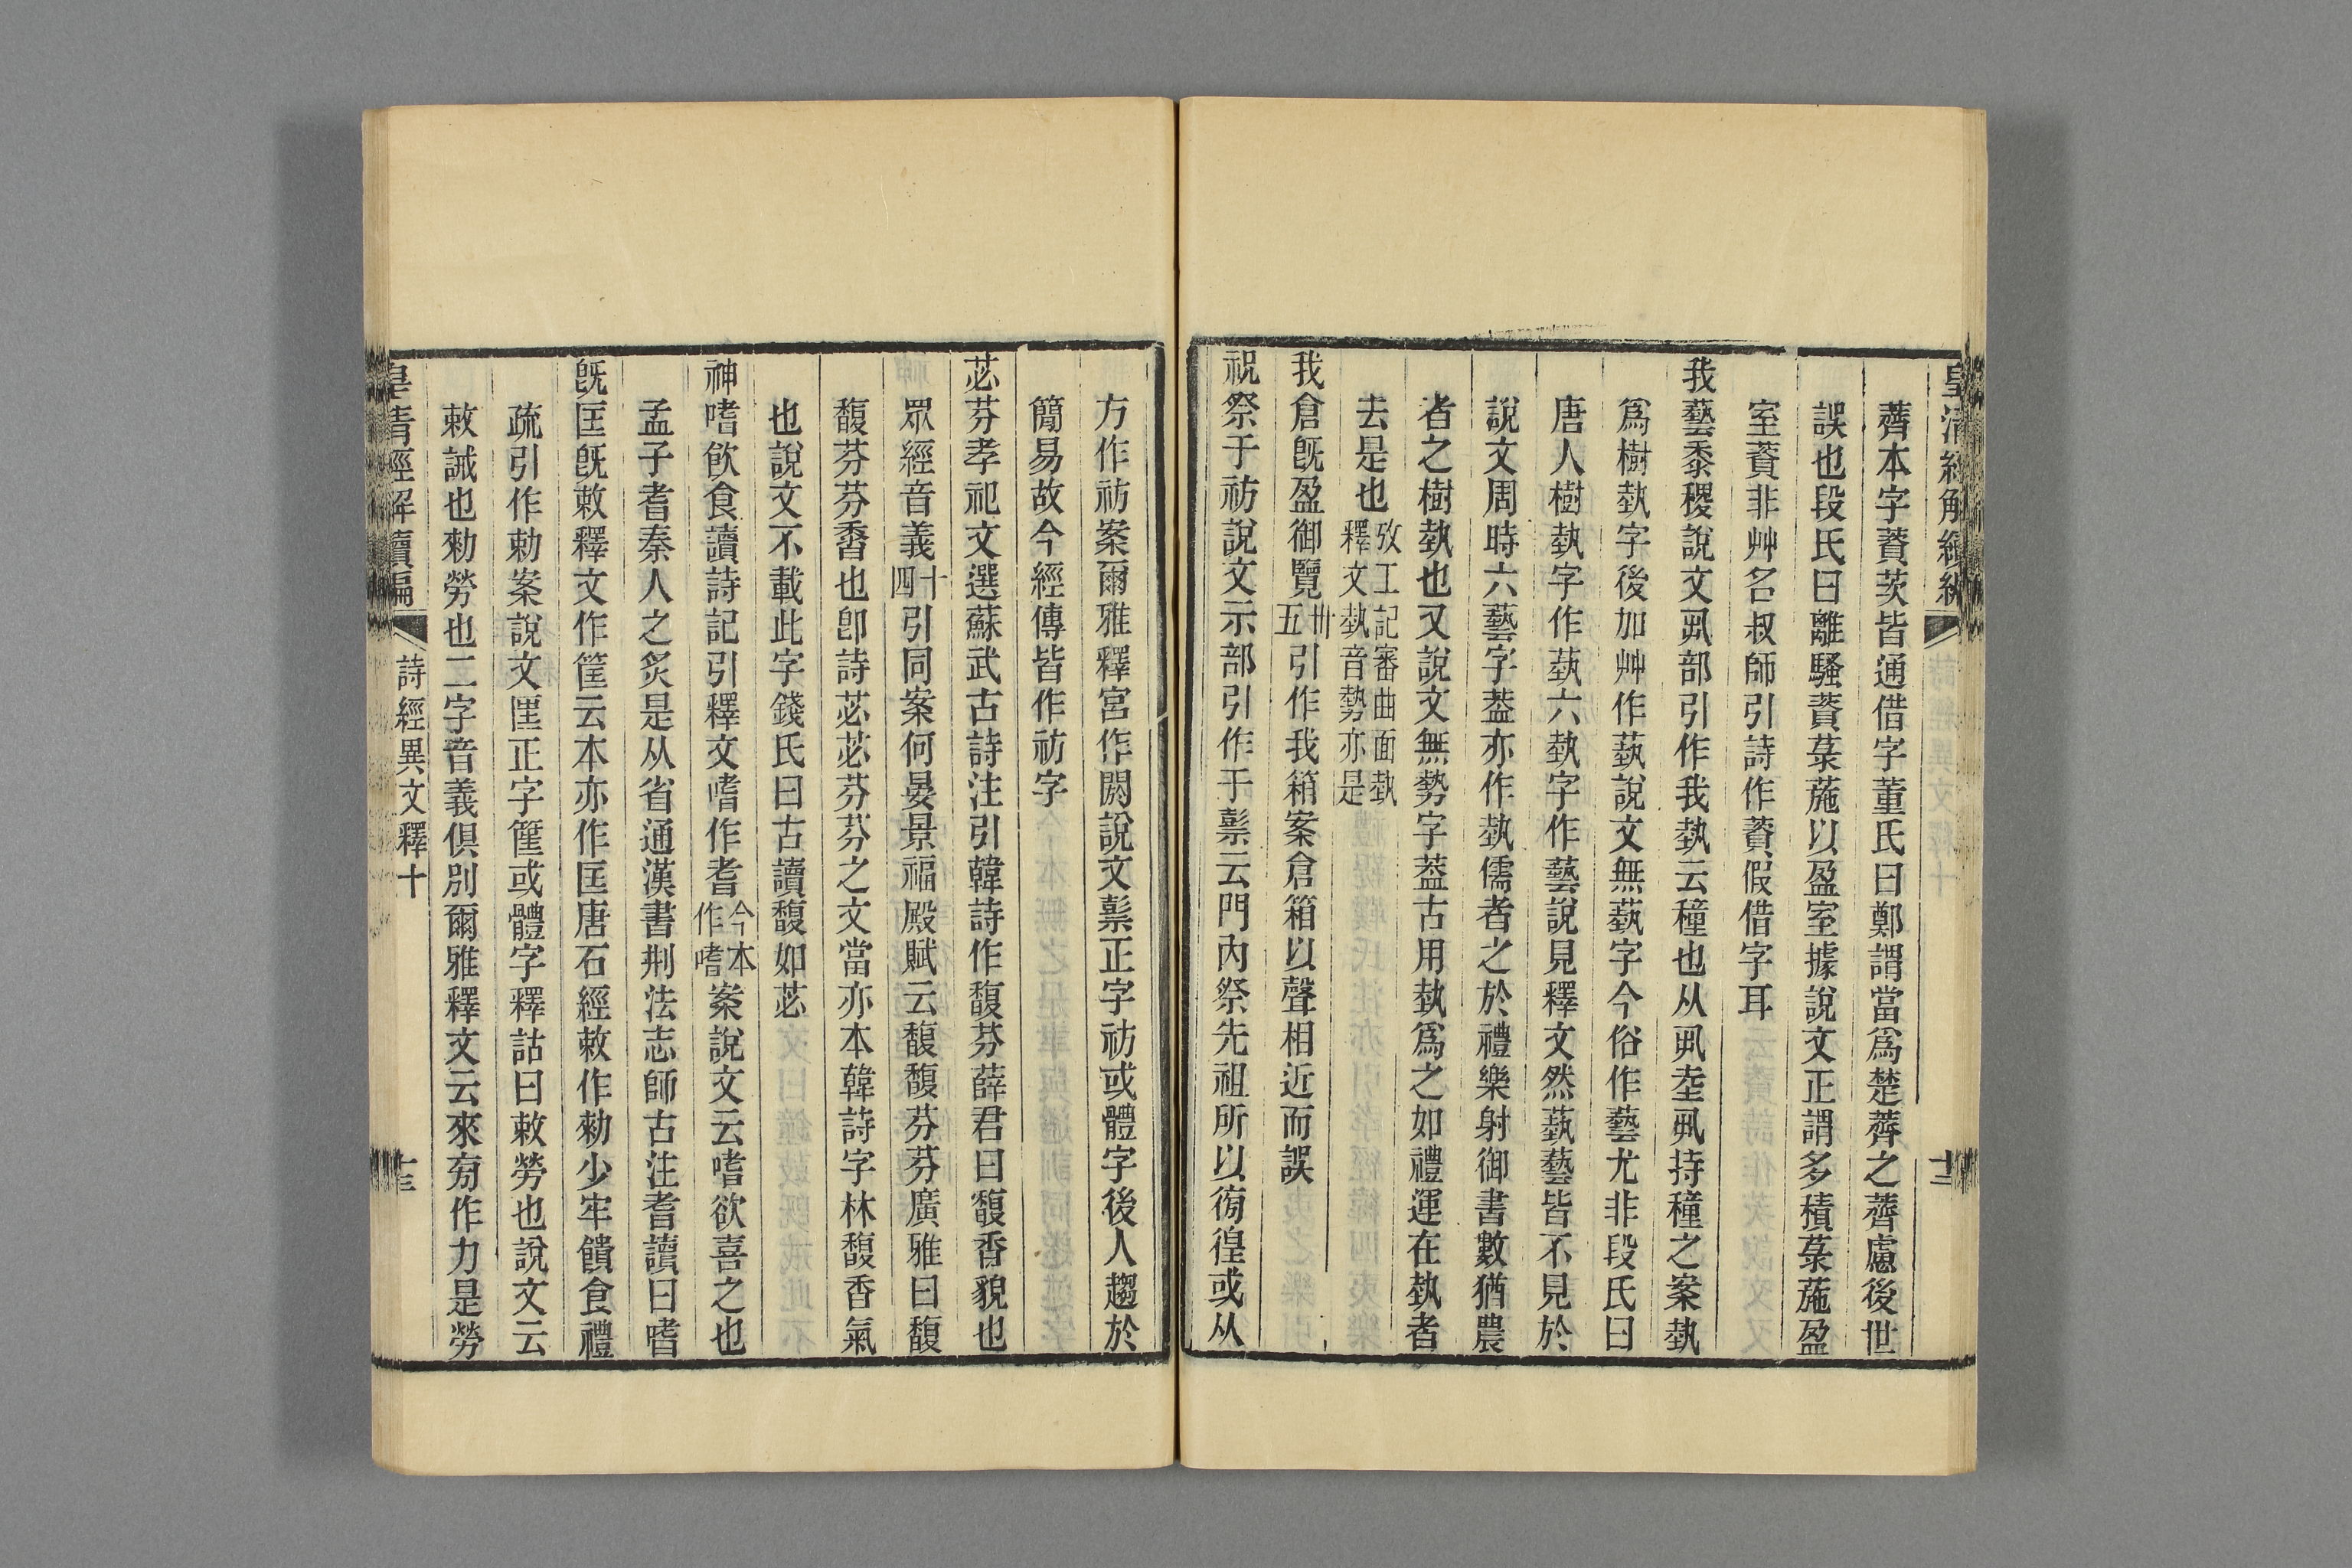 皇清經解續編
十三
薺本字薋茨皆通借字董氏曰鄭謂當爲楚薺之薺慮後世
誤也段氏曰離騷薋菉葹以盈室據說文正謂多積菉葹盈
室薋非艸名叔師引詩作薋假借字耳
我藝黍稷說文丮部引作我埶云穜也从丮坴丮持穜之案埶
爲樹埶字後加艸作蓺說文無蓺字今俗作藝尤非段氏曰
唐人樹埶字作蓺六埶字作藝說見釋文然蓺藝皆不見於
說文周時六藝字葢亦作埶儒者之於禮樂射御書數猶農
者之樹埶也又說文無勢字葢古用埶爲之如禮運在埶者
去是也攷工記審曲面埶釋文埶音勢亦是
我倉旣盈御覽卅五引作我箱案倉箱以聲相近而誤
祝祭于祊說文示部引作于䰞云門內祭先祖所以徬徨或从
方作祊案爾雅釋宮作閍說文䰞正字祊或體字後人趨於
簡易故今經傳皆作祊字
苾芬孝祀文選蘇武古詩注引韓詩作馥芬薛君曰馥香貌也
眾經音義十四引同案何晏景福殿賦云馥馥芬芬廣雅曰馥
馥芬芬香也卽詩苾苾芬芬之文當亦本韓詩字林馥香氣
也說文不載此字錢氏曰古讀馥如苾
神嗜飮食讀詩記引釋文嗜作耆今本作嗜案說文云嗜欲喜之也
孟子耆秦人之炙是从省通漢書刑法志師古注耆讀曰嗜
旣匡旣敕釋文作筐云本亦作匡唐石經敕作勑少牢饋食禮
疏引作勅案說文匩正字筐或體字釋詁曰敕勞也說文云
敕誡也勑勞也二字音義俱別爾雅釋文云來㫄作力是勞
皇清經解續編
詩經異文釋十
十三